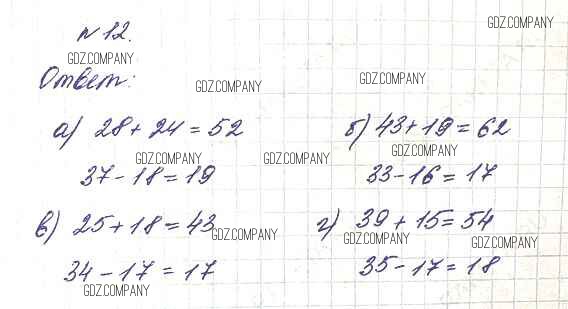 № 12.
GDZ.COMPANY
GDZ.COMPANY
Ответ:
GDZ.COMPANY
GDZ.COMPANY
а) 28 + 24 = 52 б) 43 + 19 = 62
GDZ.COMPANY GDZ.COMPANY GDZ.COMPANY
37 - 18 = 19 33 - 16 = 17
в) 25 + 18 = 43 г) 39 + 15 = 54
GDZ.COMPANY GDZ.COMPANY GDZ.COMPANY
34 - 17 = 17 35 - 17 = 18
GDZ.COMPANY